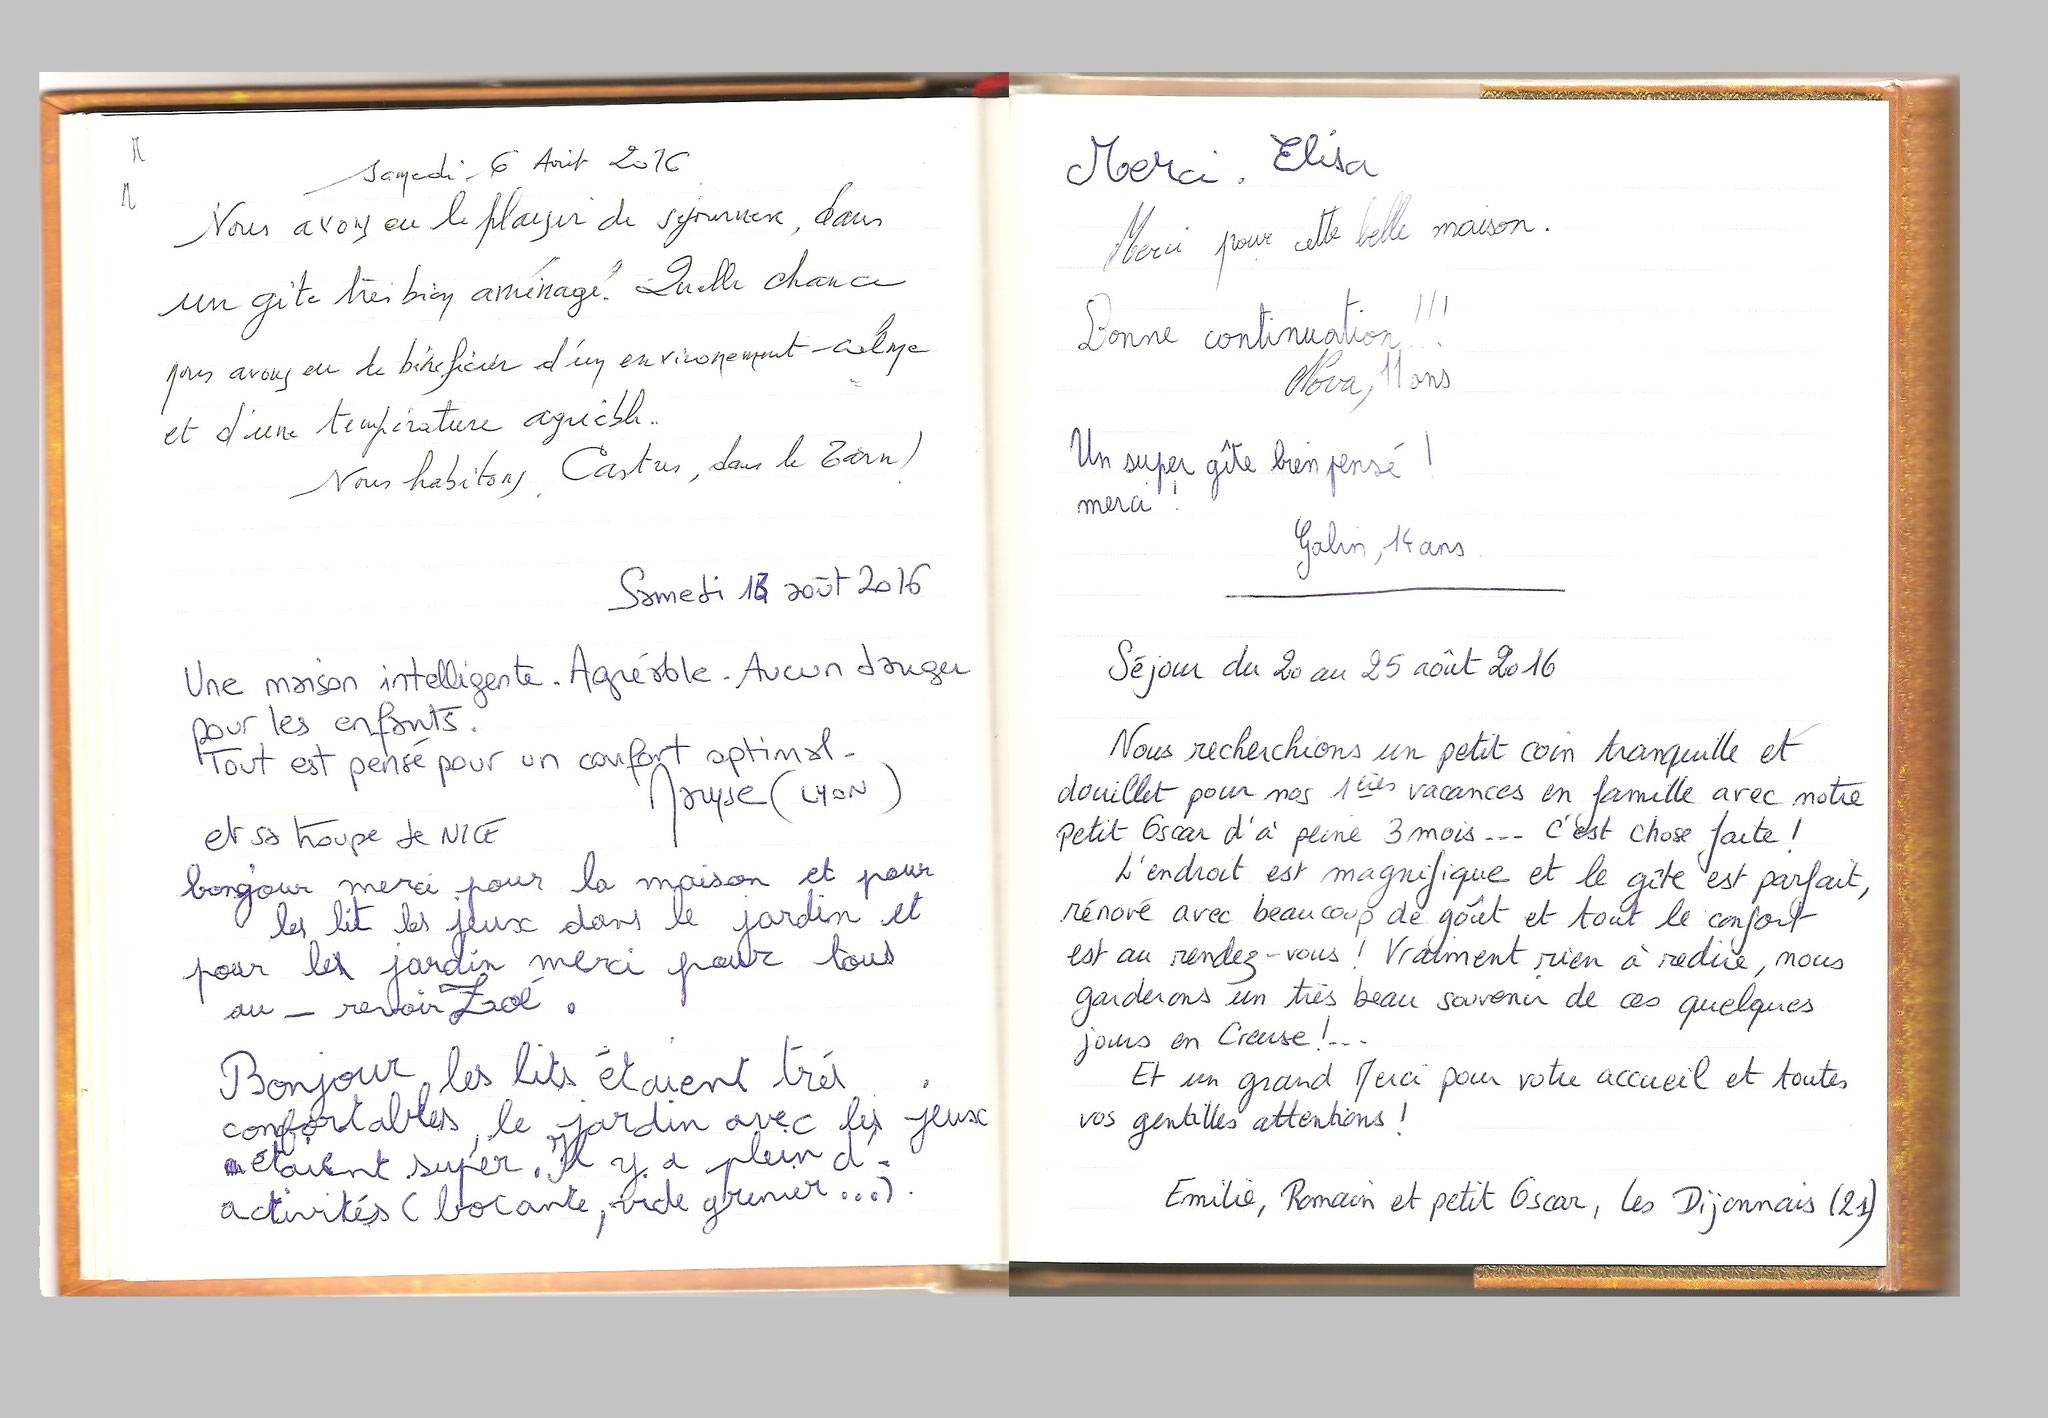 Samedi 6 Août 2016
Nous avons eu le plaisir de séjourner, dans
un gîte très bien aménagé. Quelle chance
nous avons eu de bénéficier d'un environement calme
et d'une température agréable..
Nous habitons, Castres, dans le Tarn!
Samedi 13 août 2016
Une maison intelligente. Agréable. Aucun danger
pour les enfants.
Tout est pensé pour un confort optimal.
Maryse (LYON)
et sa troupe de NICE
bongour merci pour la maison et pour
les lit les jeux dans le jardin et
pour les jardin merci pour tous
au - revoir Zoé.
Bonjour les lits étaient trés
confortables, le jardin avec les jeux
étaient super. Il y a plein d'
activités (brocante, vide grenier...).
Merci. Elisa
Merci pour cette belle maison.
Bonne continuation!!!
Nova, 11 ans
Un super gîte bien pensé !
merci !
Galin, 14 ans
Séjour du 20 au 25 août 2016
Nous recherchions un petit coin tranquille et
douillet pour nos 1ères vacances en famille avec notre
petit Oscar d'à peine 3 mois... C'est chose faite!
L'endroit est magnifique et le gîte est parfait,
rénové avec beaucoup de goût et tout le confort
est au rendez-vous! Vraiment rien à redire, nous
garderons un très beau souvenir de ces quelques
jours en Creuse!...
Et un grand Merci pour votre accueil et toutes
vos gentilles attentions!
Emilie, Romain et petit Oscar, les Dijonnais (21)